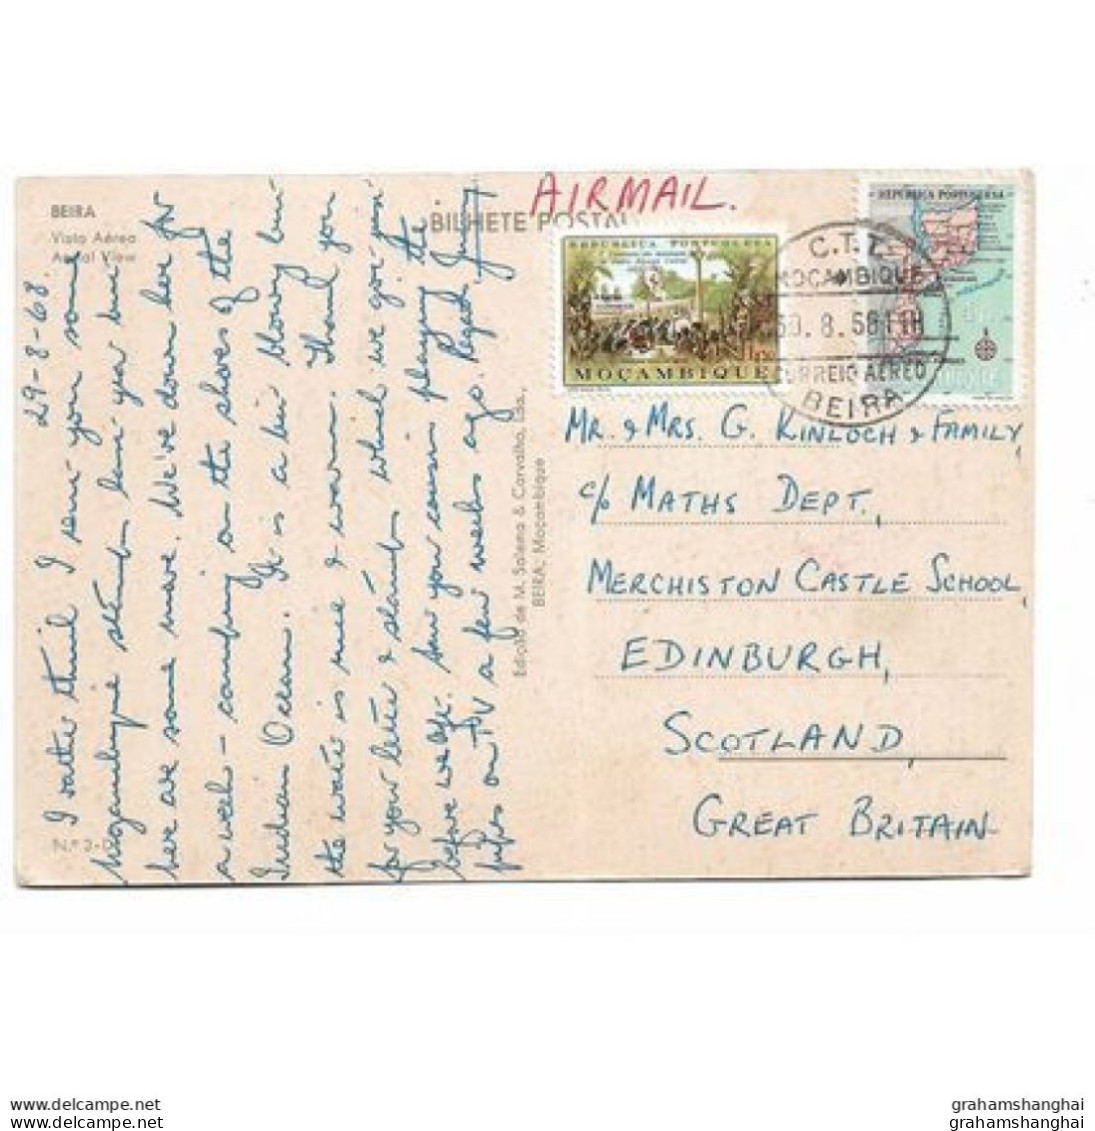 BEIRA
Vista Aérea
Aerial View
BILHETE POSTAL
AIRMAIL.
29-8-68
I rather think I sent you some
Moçambique stamps last year but
here are some more. We've down here for
a week - camping on the shores of the
Indian Ocean. It is a bit blowy but
the water is nice & warm. Thank you
for your letter & stamps which we got just
before we left. Saw your cousin playing the
pipes on TV a few weeks ago. Regards,
Nº 3-D
Edição de M. Salema & Carvalho, Lda.,
BEIRA, Moçambique
REPÚBLICA PORTUGUESA
MOÇAMBIQUE
REPÚBLICA PORTUGUESA
C.T.T.
MOÇAMBIQUE
CORREIO AÉREO
BEIRA
MR. & MRS. G. KINLOCH & FAMILY,
c/o MATHS DEPT.,
MERCHISTON CASTLE SCHOOL,
EDINBURGH,
SCOTLAND,
GREAT BRITAIN
grahamshanghai
www.delcampe.net
grahamshanghai
www.delcampe.net